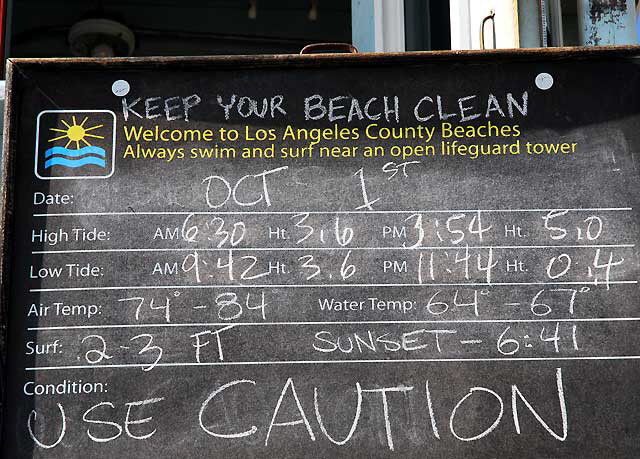 KEEP YOUR BEACH CLEAN
Welcome to Los Angeles County Beaches
Always swim and surf near an open lifeguard tower
Date: OCT 1ST
High Tide: AM 6:30 Ht. 3.6 PM 3:54 Ht. 5.0
Low Tide: AM 9:42 Ht. 3.6 PM 11:44 Ht. 0.4
Air Temp: 74° - 84 Water Temp: 64° - 67°
Surf: 2-3 FT SUNSET - 6:41
Condition:
USE CAUTION